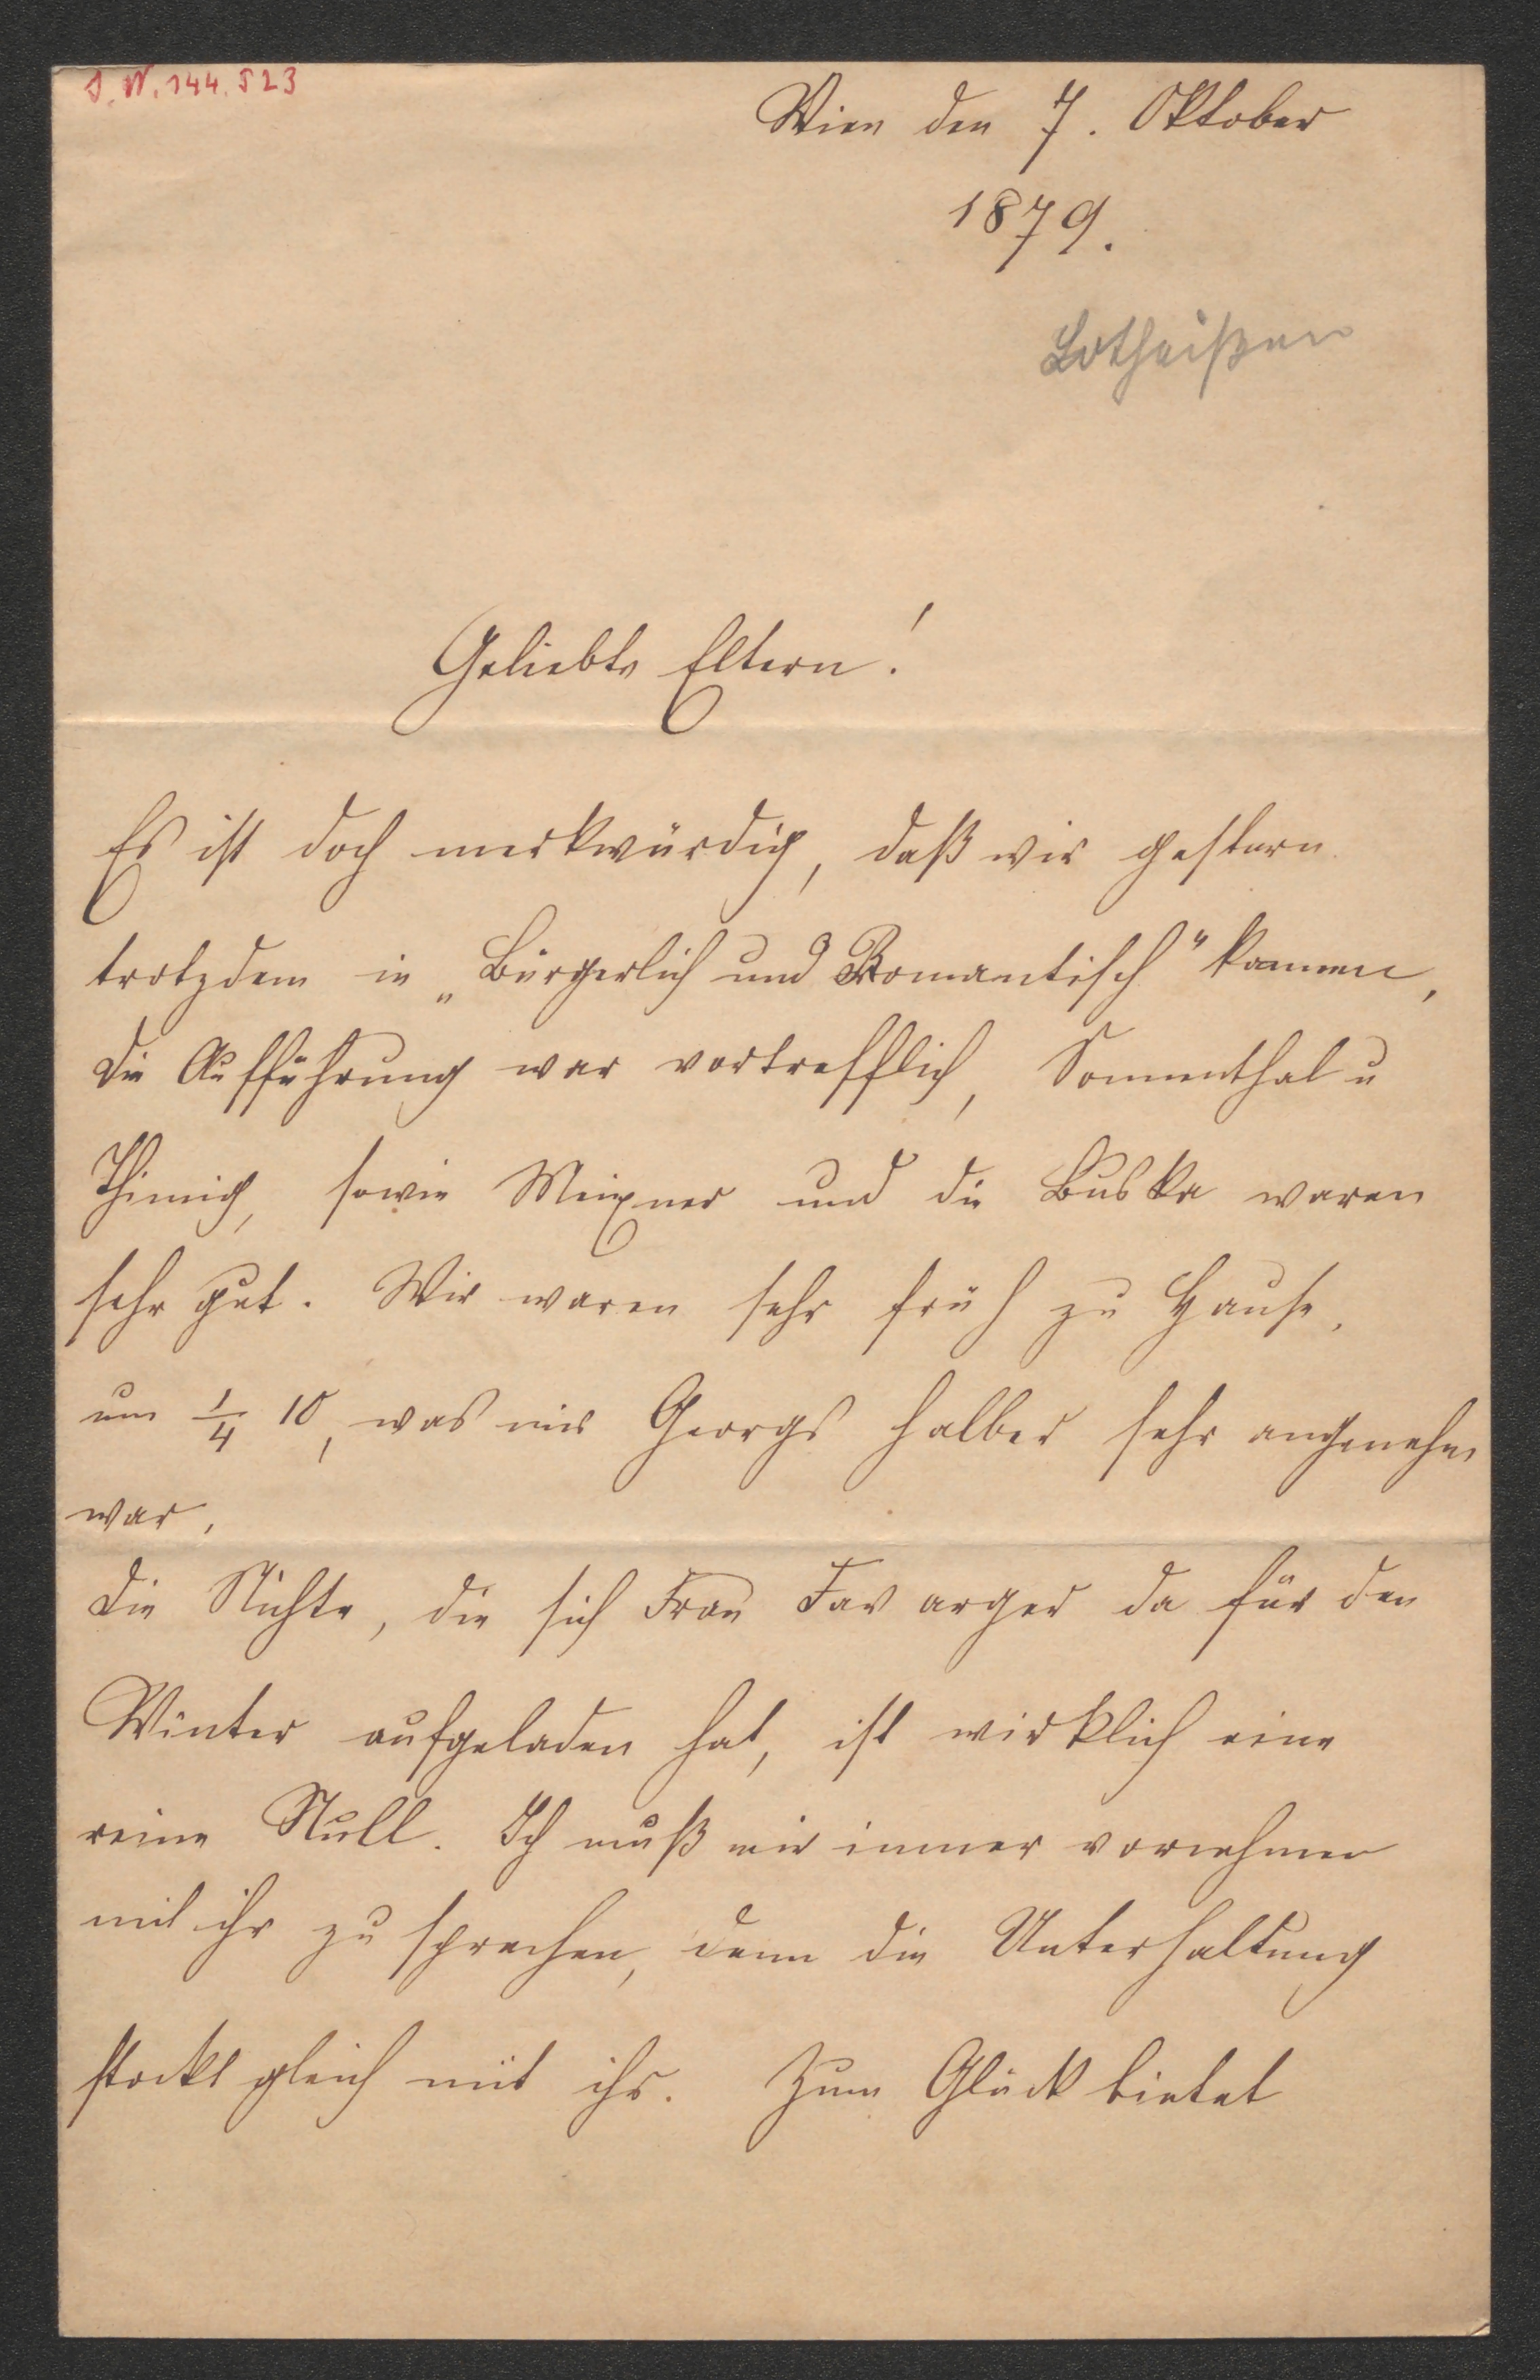 J. N. 144.523
Wien den 7. Oktober
1879.
Lotheißen
Geliebte Eltern!
Es ist doch merkwürdig, daß wir gestern
trotzdem in „Bürgerlich und Romantisch" kamen,
die Aufführung war vortrefflich, Sonnenthal u
Thimig, sowie Meixner und die Buska waren
sehr gut. Wir waren sehr früh zu Hause,
um 1/4 10, was mir Georgs halber sehr angenehm
war.
Die Nichte, die sich Frau Favarger da für den
Winter aufgeladen hat, ist wirklich eine
reine Null. Ich muß mir immer vornehmen
mit ihr zu sprechen, denn die Unterhaltung
stockt gleich mit ihr. Zum Glück bietet